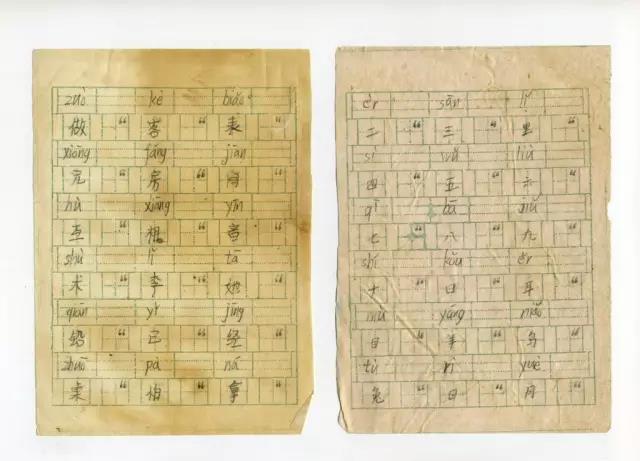 zuò kè biǎo
做 “ 客 “ 表 “
xiōng fáng jiān
兄 “ 房 “ 间 “
hù xiāng yīn
互 “ 相 “ 音 “
shù lǐ tā
术 “ 李 “ 她 “
qiān yǐ jīng
铅 “ 已 “ 经 “
zhuō pà ná
桌 “ 怕 “ 拿 “
èr sān lǐ
二 “ 三 “ 里 “
sì wǔ liù
四 “ 五 “ 六 “
qī bā jiǔ
七 “ 八 “ 九 “
shí kǒu ěr
十 “ 口 “ 耳 “
mù yáng niǎo
目 “ 羊 “ 鸟 “
tù rì yuè
兔 “ 日 “ 月 “